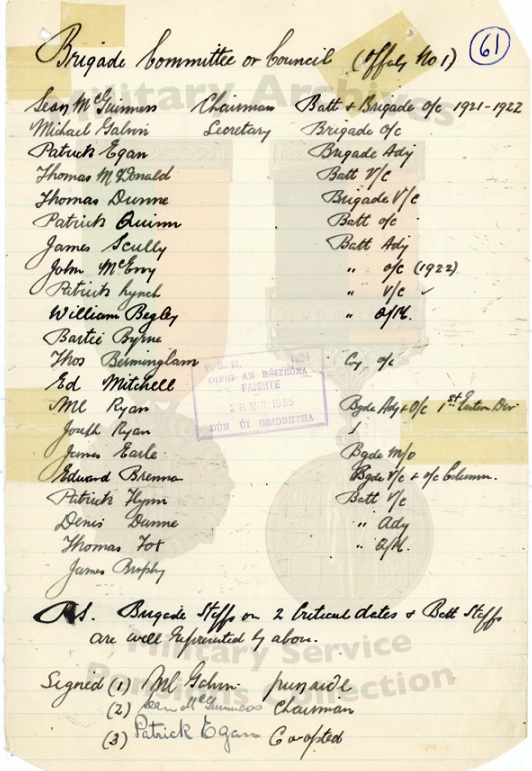 Brigade Committee or Council (Offaly No 1) 61
Sean McGuinness Chairman Batt + Brigade o/c 1921-1922
Michael Galvin Secretary Brigade o/c
Patrick Egan Brigade Adj
Thomas McDonald Batt V/c
Thomas Dunne Brigade V/c
Patrick Quinn Batt o/c
James Scully Batt Adj
John McEvoy " o/c (1922)
Patrick Lynch " V/c
William Begley " Q/M.
Bartie Byrne
Thos Bermingham Coy. o/c
Ed Mitchell
Ml Ryan Bgde Adj + O/c 1st Eastern Div
Joseph Ryan
James Earle Bgde M/o
Edward Brennan Bgde V/c + o/c Column.
Patrick Flynn Batt V/c
Denis Dunne " Adj
Thomas Fox " Q/M.
James Brophy
OIFIG AN RÉITEÓRA
FAIGHTE
DÚN UÍ CRIOMHTHA
P.S. Brigade Staffs on 2 Critical dates + Batt Staffs
are well represented by above.
Signed (1) Ml Galvin runaidhe
(2) Sean McGuinness Chairman
(3) Patrick Egan Co-opted
Military Archives
Military Service
Pensions Collection